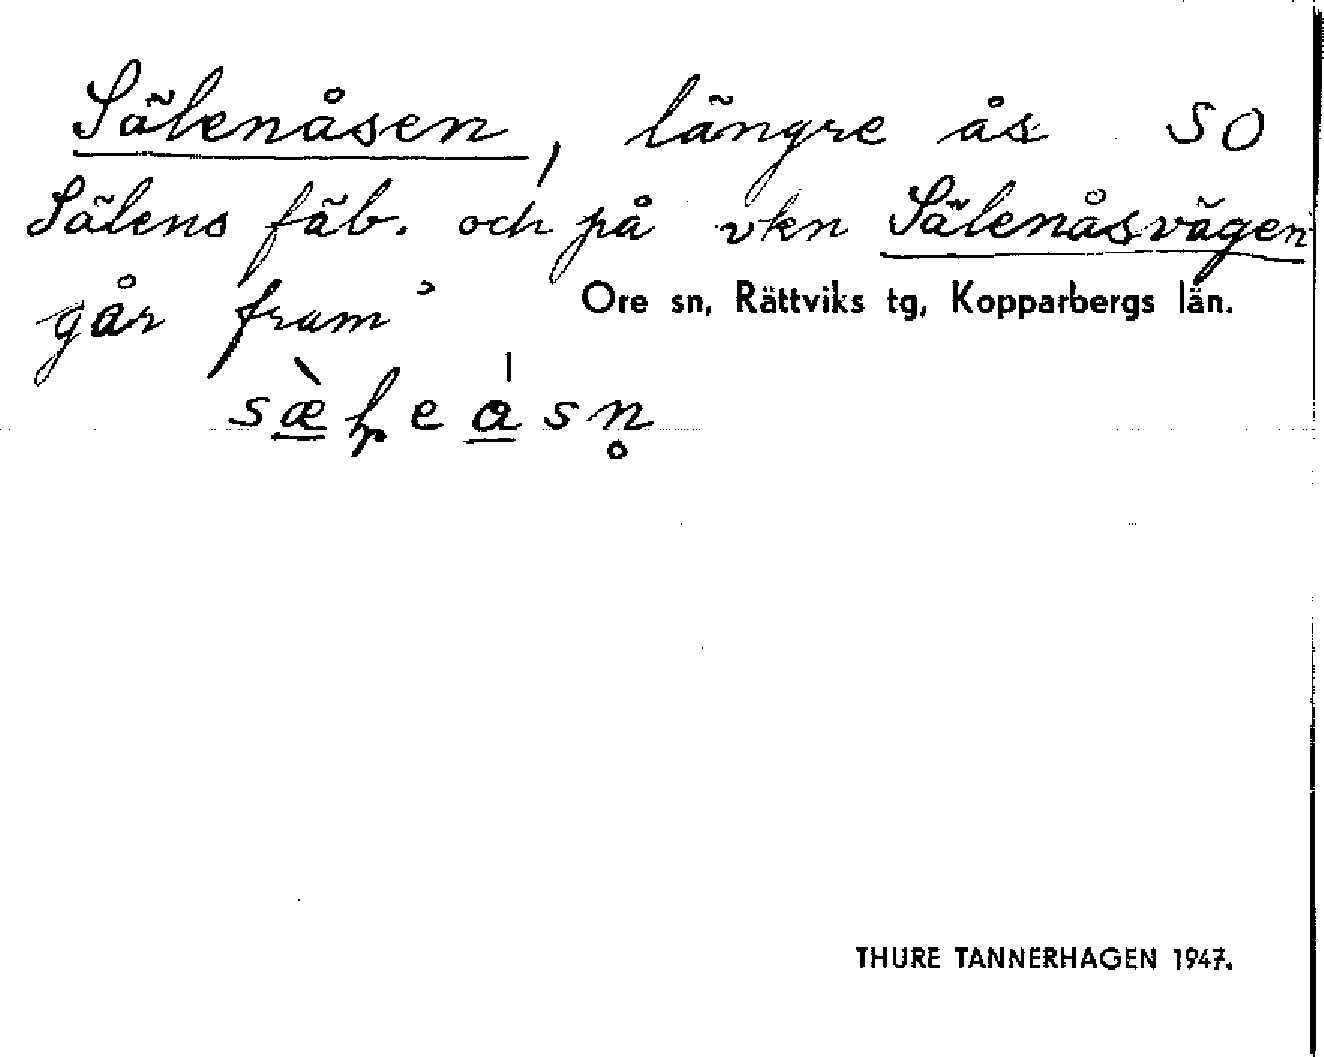 Sälenåsen, längre ås SO
Sälens fäb. och på vkn Sälenåsvägen
går fram
Ore sn, Rättviks tg, Kopparbergs län.
THURE TANNERHAGEN 1947.